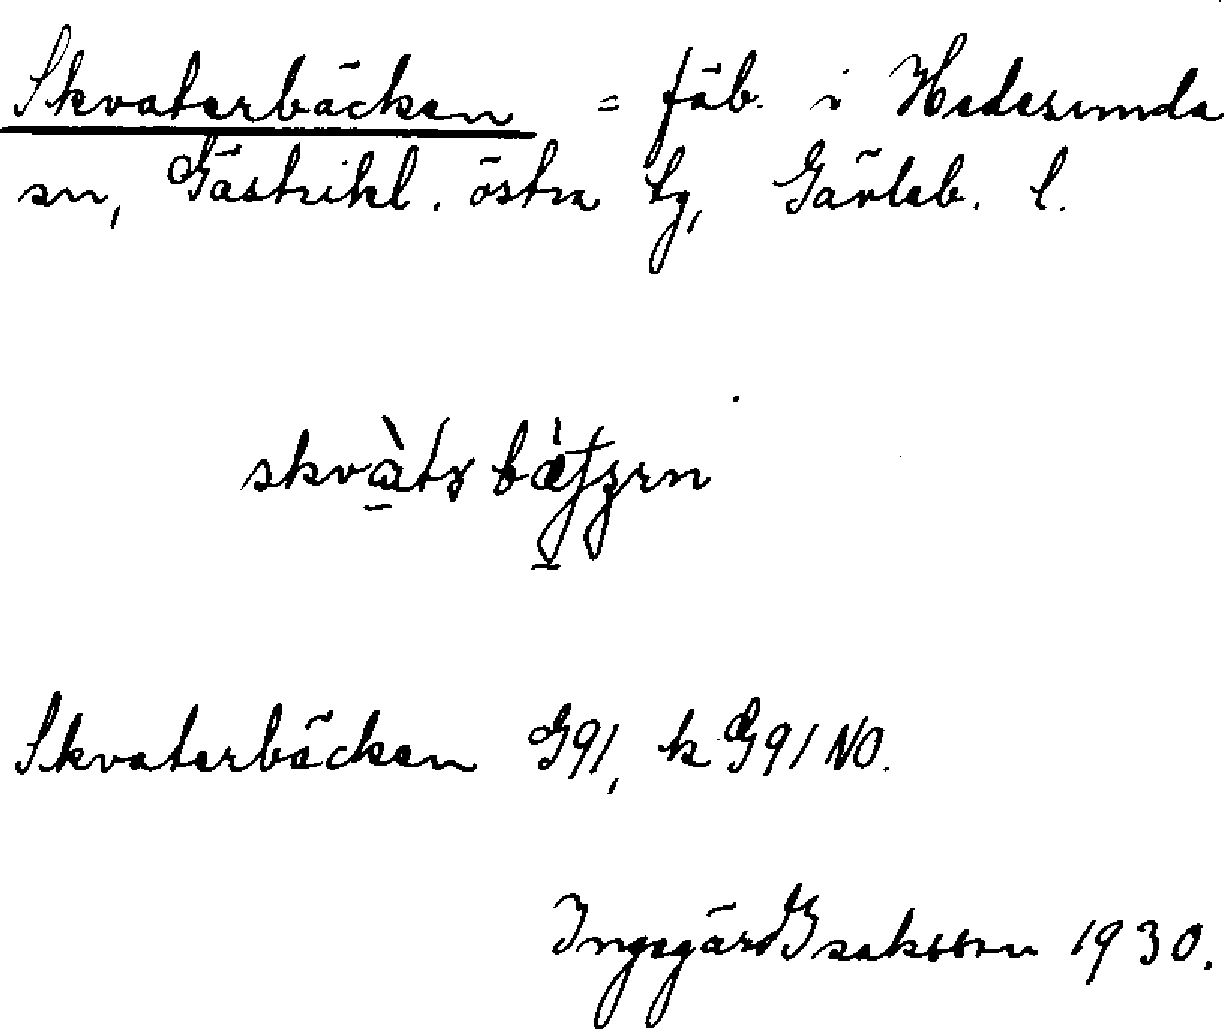 Skvaterbäcken = fäb. i Hedesunda
sn, Gästrikl. östra tg, Gävleb. l.
Skvaterbäcken G91, k G91 NO.
Ingegärd Isaksson 1930.